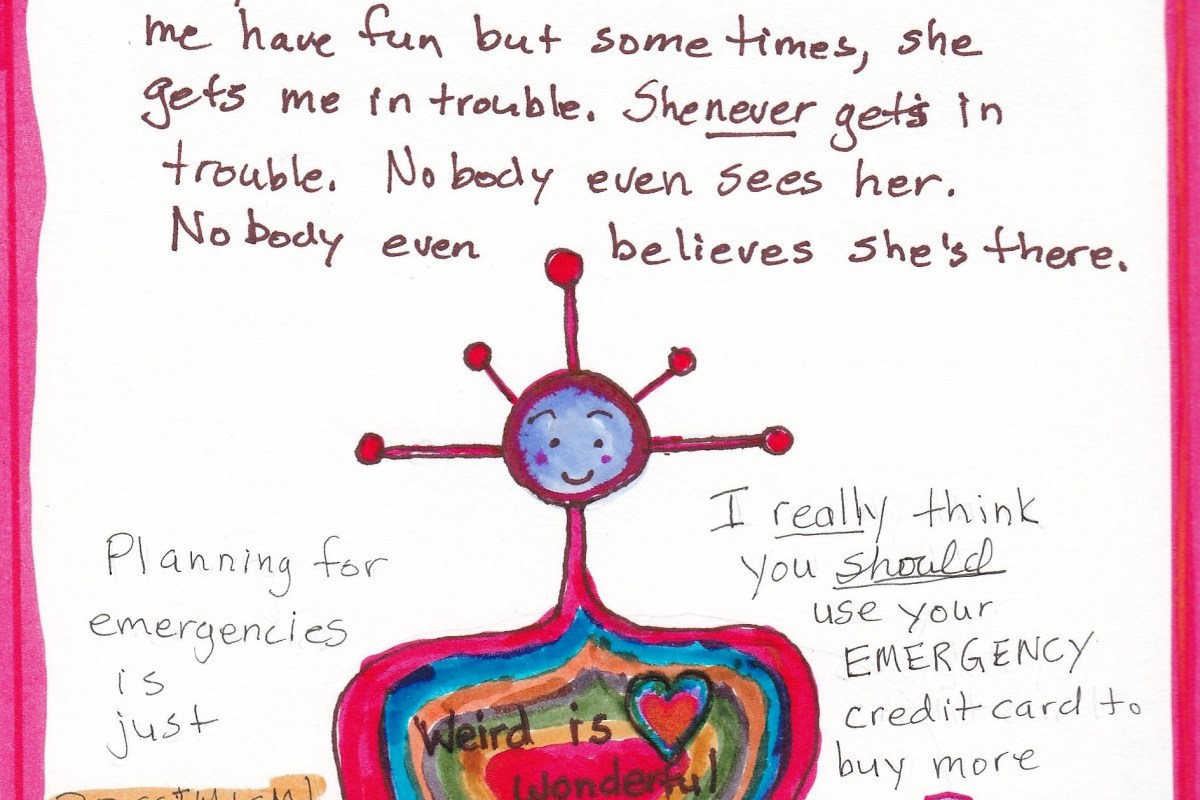 me have fun but some times, she
gets me in trouble. She never gets in
trouble. Nobody even sees her.
Nobody even believes she's there.
I really think
you should
use your
EMERGENCY
credit card to
buy more
Planning for
emergencies
is
just
Weird is
Wonderful